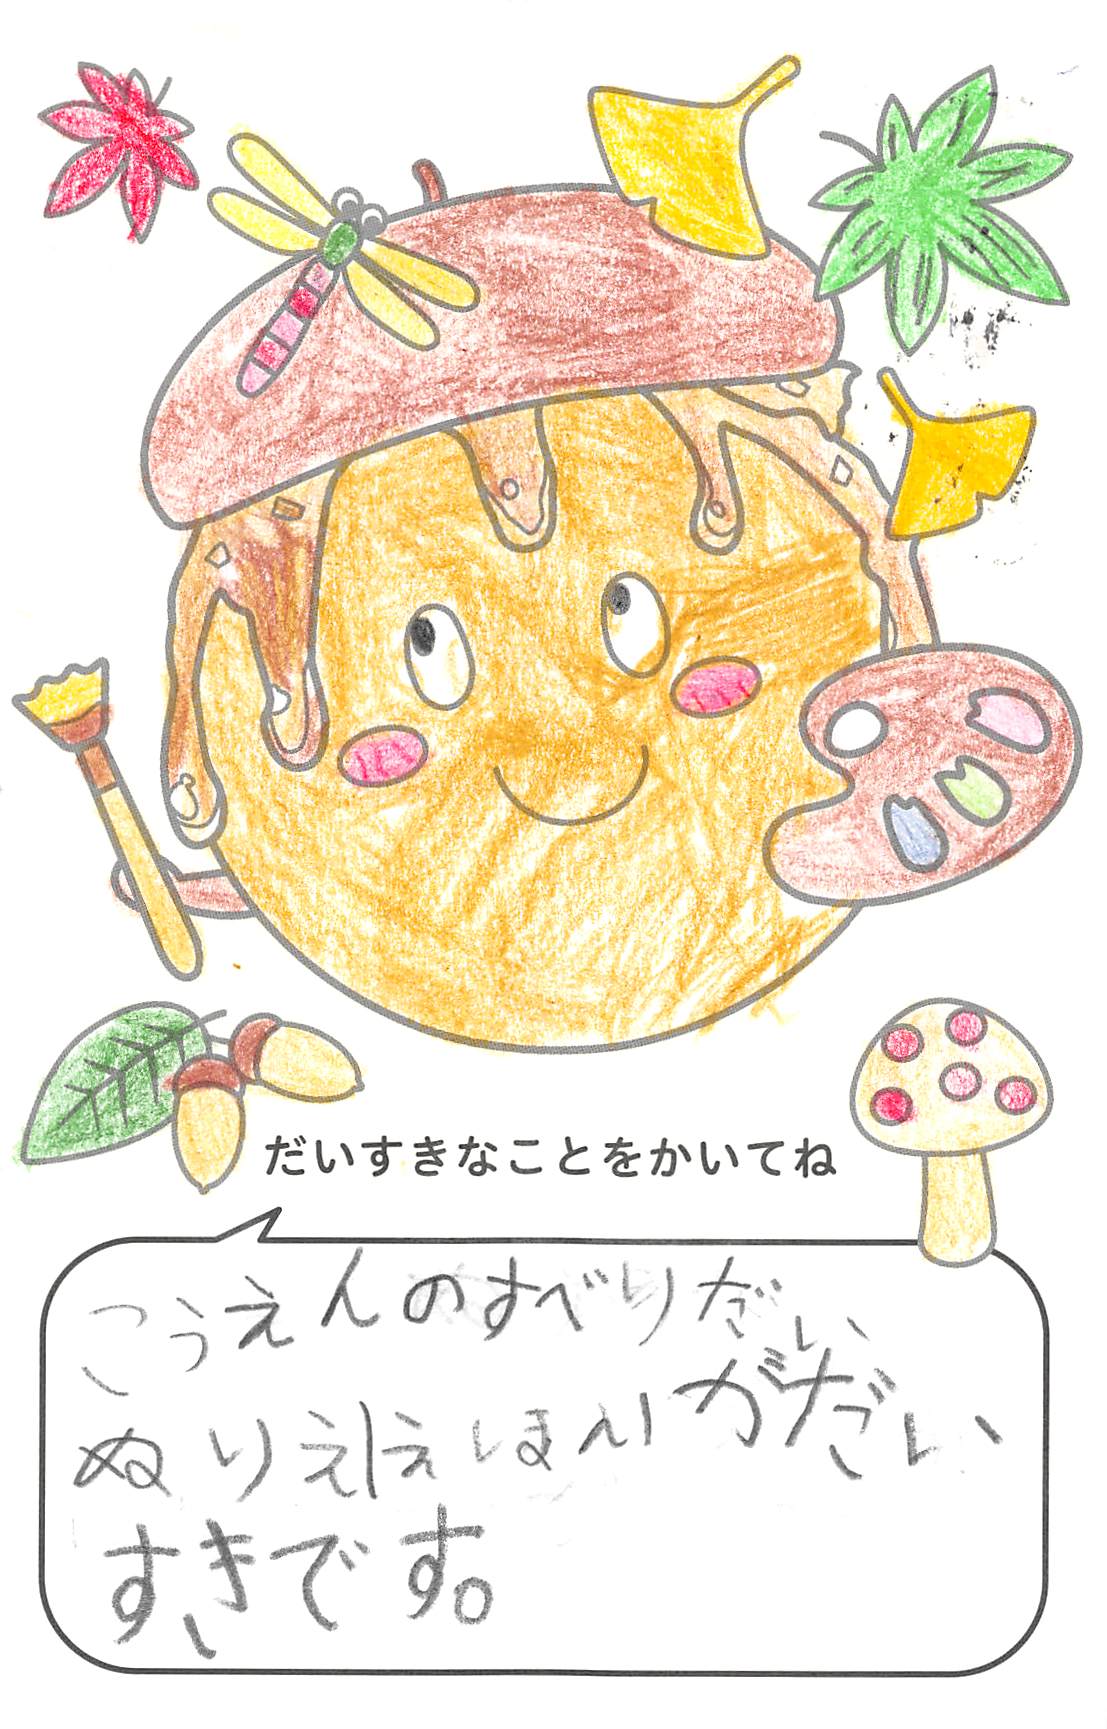 だいすきなことをかいてね
こうえんのすべりだい
ぬりえ|えほんがだい
すきです。